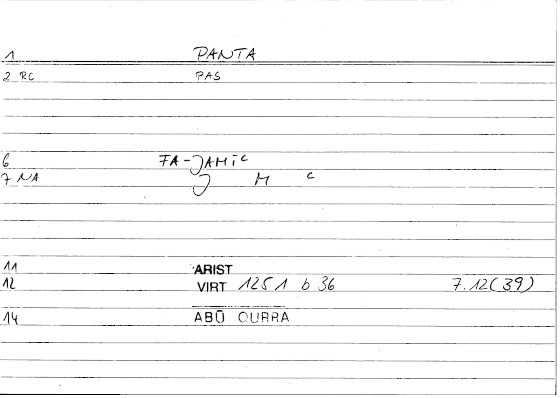 1 PANTA
2 RC PAS
6 FA-JAMĪC
7 NA J M C
11 ARIST
12 VIRT 1251 b 36 7.12(39)
14 ABŪ QURRA